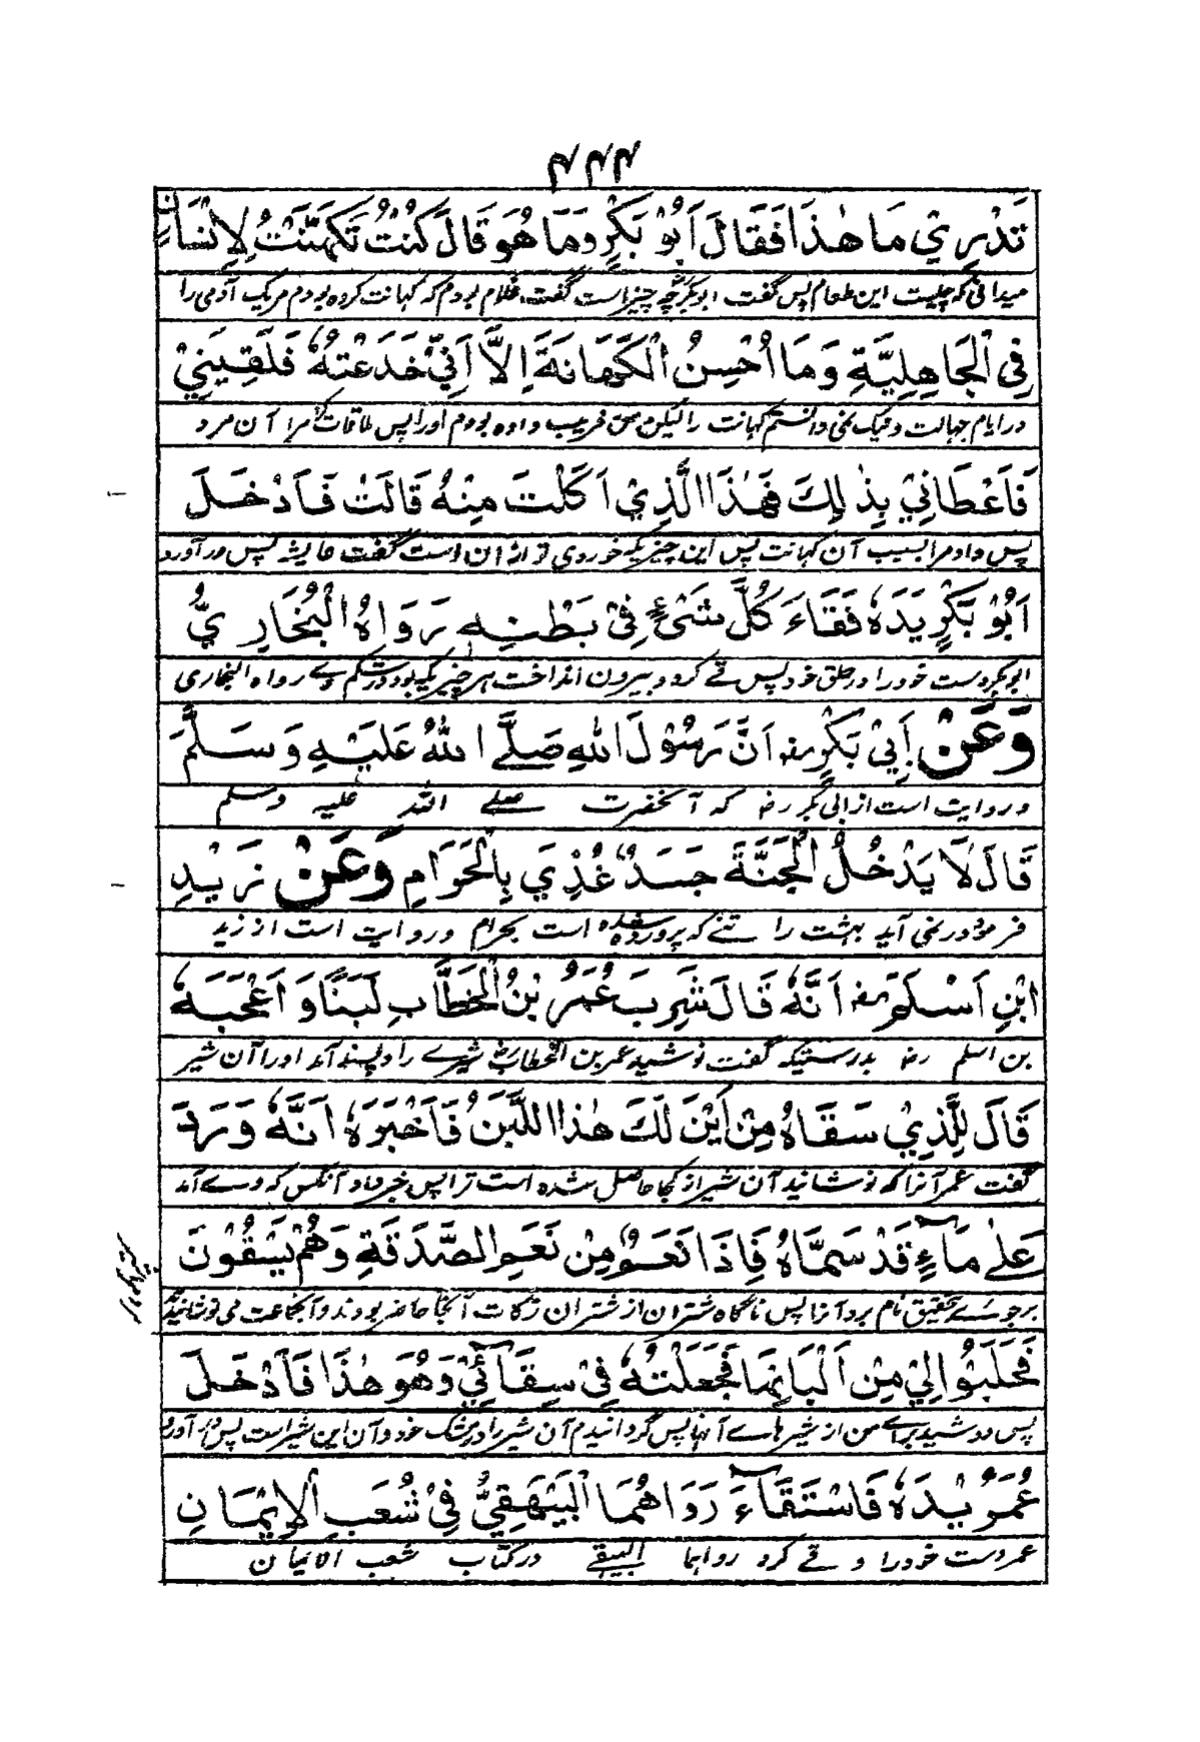 ۴۴۴
تَدْرِيْ مَا هٰذَا فَقَالَ اَبُوْ بَكْرٍ وَمَا هُوَ قَالَ كُنْتُ تَكَهَّنْتُ لِاِنْسَانٍ
میدانی که چیست این طعام پس گفت ابوبکر چه چیز است گفت غلام بودم که کهانت کرده بودم مریک آدمی را
فِي الْجَاهِلِيَّةِ وَمَا اُحْسِنُ الْكَهَانَةَ اِلَّا اَنِّيْ خَدَعْتُهٗ فَلَقِيَنِيْ
در ایام جهالت و نیک نمی دانستم کهانت را لیکن من فریب داده بودم او را پس ملاقات کرد مرا آن مرد
فَاَعْطَانِيْ بِذٰلِكَ فَهٰذَا الَّذِيْ اَكَلْتَ مِنْهُ قَالَتْ فَاَدْخَلَ
پس داد مرا بسبب آن کهانت پس این چیزیکه خوردی تو ازان است گفت عایشه پس در آورد
اَبُوْ بَكْرٍ يَدَهٗ فَقَاءَ كُلَّ شَيْءٍ فِيْ بَطْنِهٖ رَوَاهُ الْبُخَارِيُّ
ابوبکر دست خود را در حلق خود پس قے کرد و بیرون انداخت هر چیزیکه بود در شکم وے رواه البخاری
وَعَنْ اَبِيْ بَكْرٍ رضـ اَنَّ رَسُوْلَ اللهِ صَلَّے اللهُ عَلَيْهِ وَسَلَّمَ
و روایت است از ابی بکر رضـ که آنحضرت صلے الله علیه وسلم
قَالَ لَا يَدْخُلُ الْجَنَّةَ جَسَدٌ غُذِيَ بِالْحَرَامِ وَعَنْ زَيْدِ
فرمود در نمی آید بهشت را تنے که پرورده شده است بحرام و روایت است از زید
ابْنِ اَسْلَمَ رضـ اَنَّهٗ قَالَ شَرِبَ عُمَرُ بْنُ الْخَطَّابِ لَبَنًا وَ اَعْجَبَهٗ
بن اسلم رضـ بدرستیکه گفت نوشید عمر بن الخطاب رضـ شیرے را و پسند آمد او را آن شیر
قَالَ لِلَّذِيْ سَقَاهُ مِنْ اَيْنَ لَكَ هٰذَا اللَّبَنُ فَاَخْبَرَهٗ اَنَّهٗ وَرَدَ
گفت عمر آنرا که نوشانید آن شیر از کجا حاصل شده است ترا پس خبر داد آنکس که وے آمد
عَلٰى مَآءٍ قَدْ سَمَّاهُ فَاِذَا نَعَمٌ مِنْ نَعَمِ الصَّدَقَةِ وَهُمْ يَسْقُوْنَ
بر جوئے بتحقیق نام برد آنرا پس ناگاه شتران از شتران زکات آنجا حاضر بودند و آنجماعت می نوشانیدند
فَحَلَبُوْا لِيْ مِنْ اَلْبَانِهَا فَجَعَلْتُهٗ فِيْ سِقَآئِيْ وَهُوَ هٰذَا فَاَدْخَلَ
پس دوشید برائے من از شیر هاے آنها پس گردانیدم آن شیر را در مشک خود و آن این شیر است پس در آورد
عُمَرُ يَدَهٗ فَاسْتَقَآءَ رَوَاهُمَا الْبَيْهَقِيُّ فِيْ شُعَبِ الْاِيْمَانِ
عمر دست خود را و قے کرد رواهما البیهقے در کتاب شعب الایمان